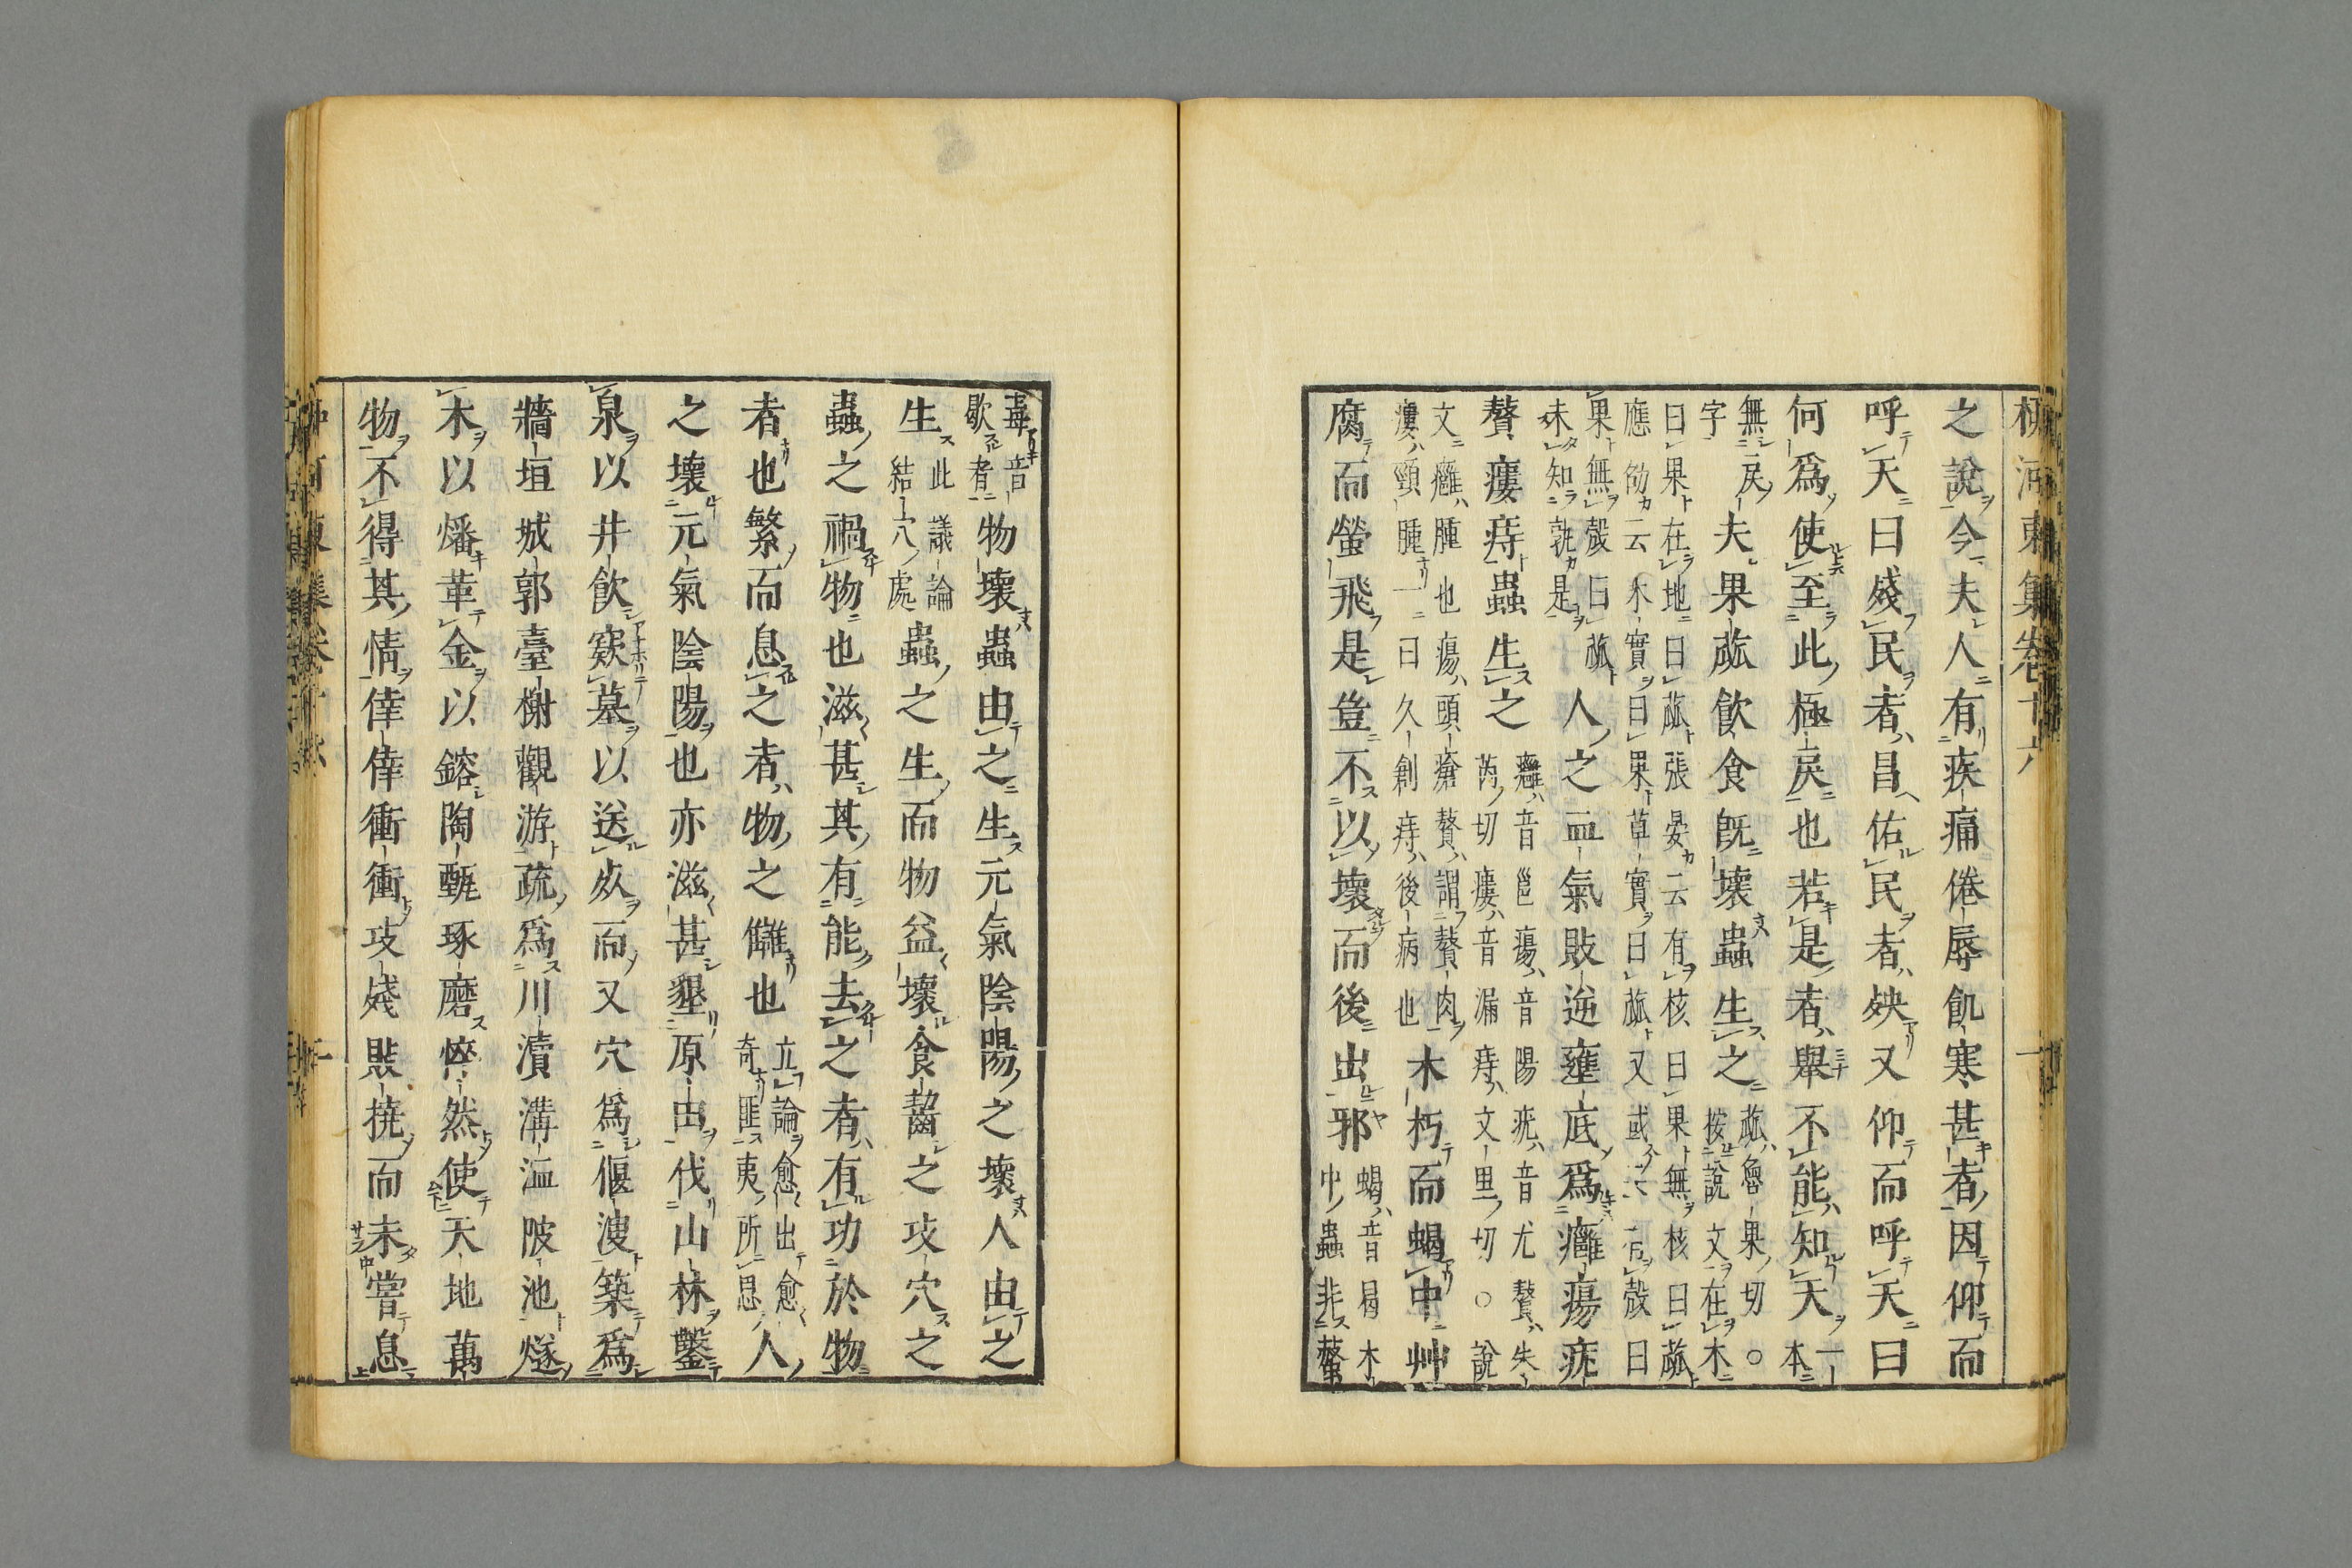 柳河東集卷十六
之說今夫人有疾痛倦辱飢寒甚者因仰而
呼天曰殘民者昌佑民者殃又仰而呼天曰
何爲使至此極戾也若是者舉不能知天一本
無戾字夫果蓏飲食旣壞蟲生之蓏魯果切○按說文在木
曰果在地曰蓏張晏云有核曰果無核曰蓏
應劭云木實曰果草實曰蓏又或云有殻曰
果無殻曰蓏未知孰是人之血氣敗逆壅底爲癰瘍疣
贅瘻痔蟲生之癰音邕瘍音陽疣音尤贅朱芮切瘻音漏痔文里切○說
文癰腫也瘍頭瘡贅謂贅肉瘻頸腫一曰久創痔後病也木朽而蝎中艸
腐而螢飛是豈不以壞而後出邪蝎音曷木中蟲非蠆
毒音歇者物壞蟲由之生元氣陰陽之壞人由之
生此議論結穴處蟲之生而物益壞食齧之攻穴之
蟲之禍物也滋甚其有能去之者有功於物
者也繁而息之者物之讎也立論愈出愈奇匪夷所思人
之壞元氣陰陽也亦滋甚墾原田伐山林鑿
泉以井飲窾墓以送死而又穴爲偃溲築爲
牆垣城郭臺榭觀游疏爲川瀆溝洫陂池燧
木以燔革金以鎔陶甄琢磨悴然使天地萬
物不得其情倖倖衝衝攻殘敗撓而未嘗息